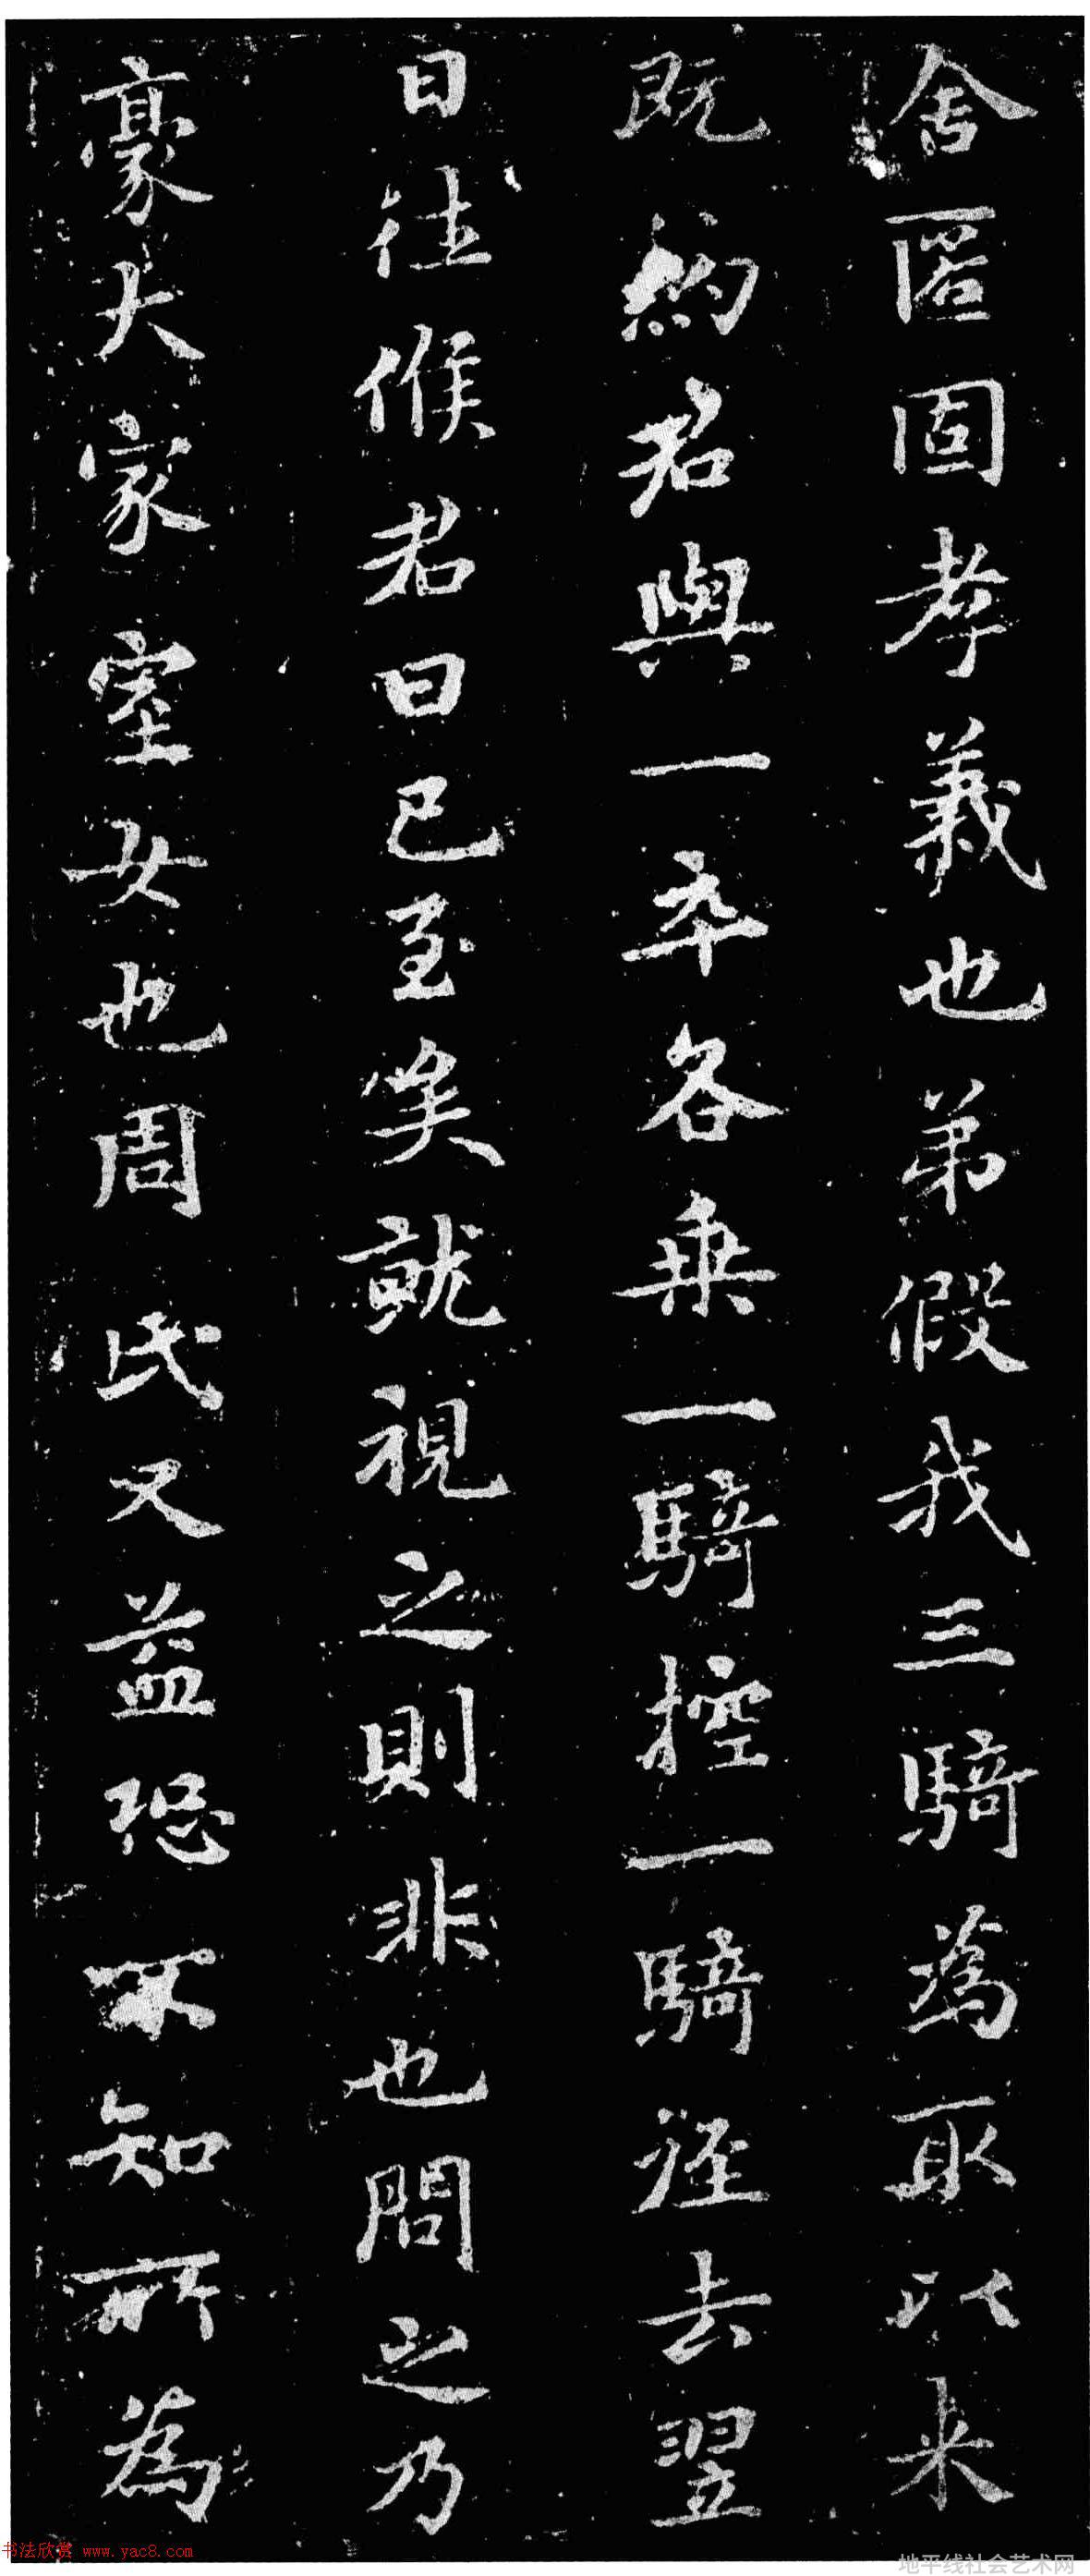 舍匿固孝義也弟假我三騎為取以来
既約君與一卒各乗一騎控一騎徑去翌
日往候君曰已至矣就視之則非也問之乃
豪大家室女也周氏又益恐不知所為
书法欣赏 www.yac8.com
地平线社会艺术网